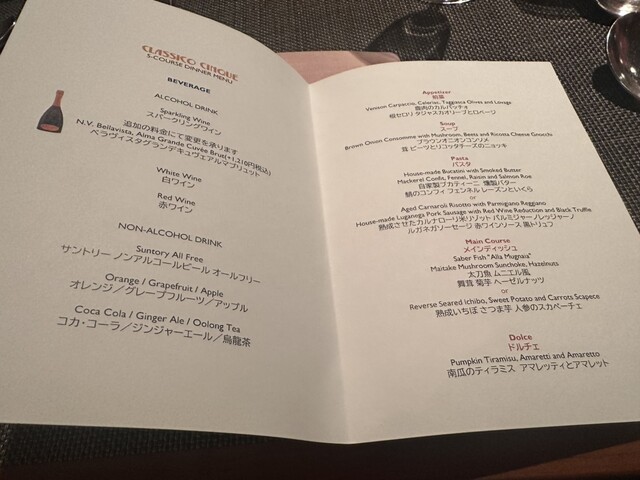 CLASSICO CINQUE
5-COURSE DINNER MENU
BEVERAGE
ALCOHOL DRINK
Sparkling Wine
スパークリングワイン
追加の料金にて変更を承ります
N.V. Bellavista, Alma Grande Cuvée Brut(+1,210円税込)
ベラヴィスタグランデキュヴェアルマブリュット
White Wine
白ワイン
Red Wine
赤ワイン
NON-ALCOHOL DRINK
Suntory All Free
サントリー ノンアルコールビール オールフリー
Orange / Grapefruit / Apple
オレンジ／グレープフルーツ／アップル
Coca Cola / Ginger Ale / Oolong Tea
コカ・コーラ／ジンジャーエール／烏龍茶
Appetizer
前菜
Venison Carpaccio, Celeriac, Taggiasca Olives and Lovage
鹿肉のカルパッチョ
根セロリ タジャスカオリーブとロベージ
Soup
スープ
Brown Onion Consomme with Mushroom, Beets and Ricotta Cheese Gnocchi
ブラウンオニオンコンソメ
茸 ビーツとリコッタチーズのニョッキ
Pasta
パスタ
House-made Bucatini with Smoked Butter
Mackerel Confit, Fennel, Raisin and Salmon Roe
自家製ブカティーニ 燻製バター
鯖のコンフィ フェンネル レーズンといくら
or
Aged Carnaroli Risotto with Parmigiano Reggiano
House-made Luganega Pork Sausage with Red Wine Reduction and Black Truffle
熟成させたカルナローリ米リゾット パルミジャーノレッジャーノ
ルガネガソーセージ 赤ワインソース 黒トリュフ
Main Course
メインディッシュ
Saber Fish "Alla Mugnaia"
Maitake Mushroom Sunchoke, Hazelnuts
太刀魚 ムニエル風
舞茸 菊芋 ヘーゼルナッツ
or
Reverse Seared Ichibo, Sweet Potato and Carrots Scapece
熟成いちぼ さつま芋 人参のスカペーチェ
Dolce
ドルチェ
Pumpkin Tiramisu, Amaretti and Amaretto
南瓜のティラミス アマレッティとアマレット